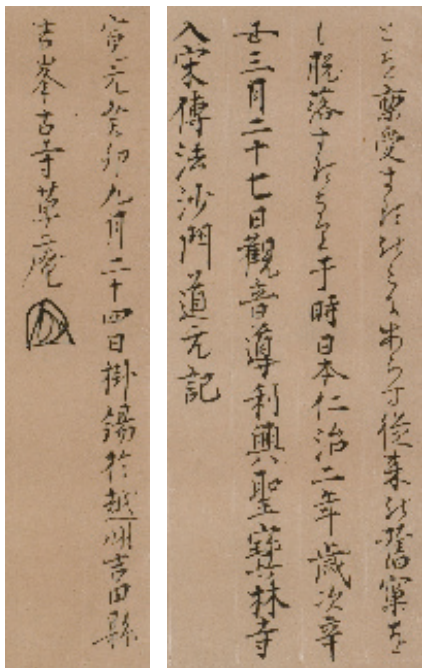 とを稟受するのみにあらす従来の舊窠を
も脱落するなり于時日本仁治二年歳次辛
丑三月二十七日觀音導利興聖寶林寺
入宋傳法沙門道元記
寛元癸卯九月二十四日掛錫於越州吉田縣
吉峯古寺草庵